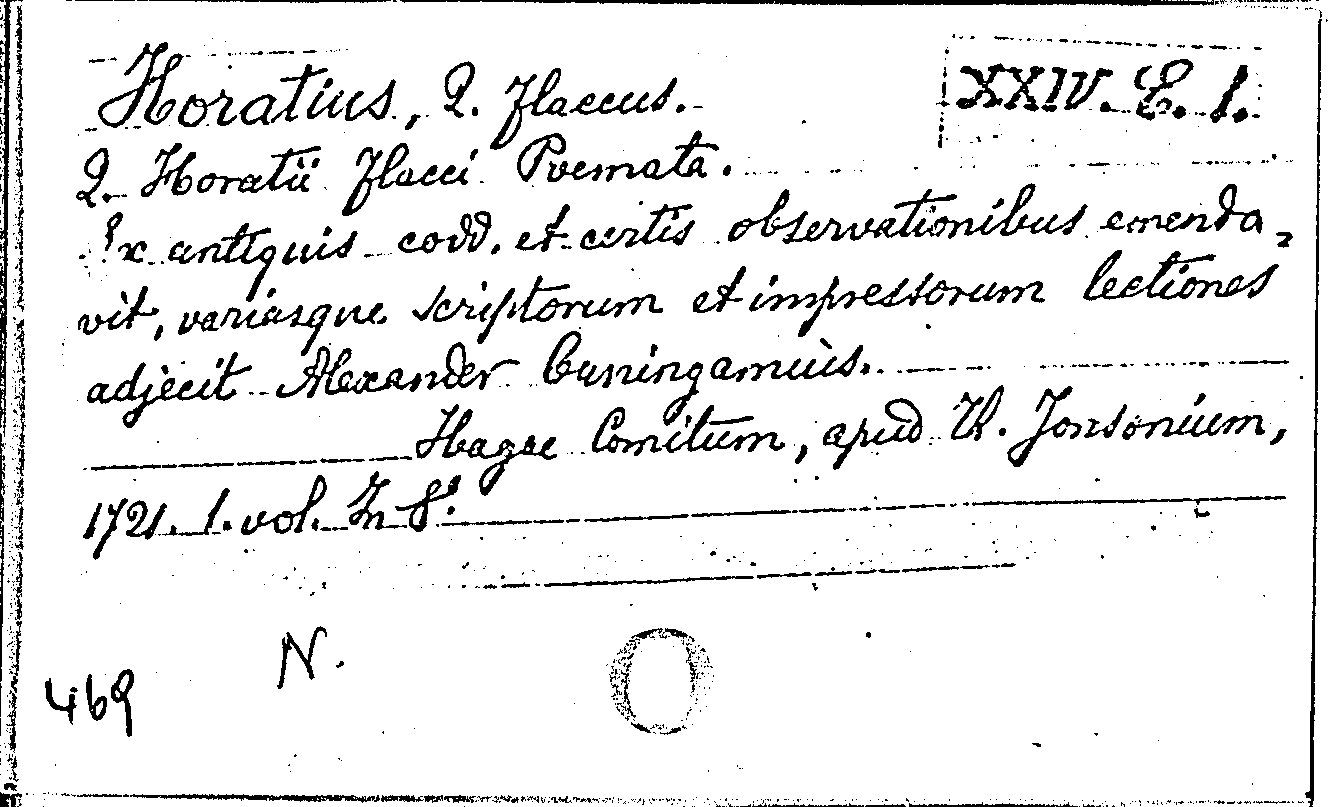 Horatius, Q. Flaccus.
XXIV. E. 1.
Q. Horatii Flacci Poemata.
Ex antiquis codd. et certis observationibus emenda-
vit, variasque scriptorum et impressorum lectiones
adjecit Alexander Cuningamius.
Hagae Comitum, apud Th. Jonsonium,
1721. 1. vol. In 8°.
N.
469